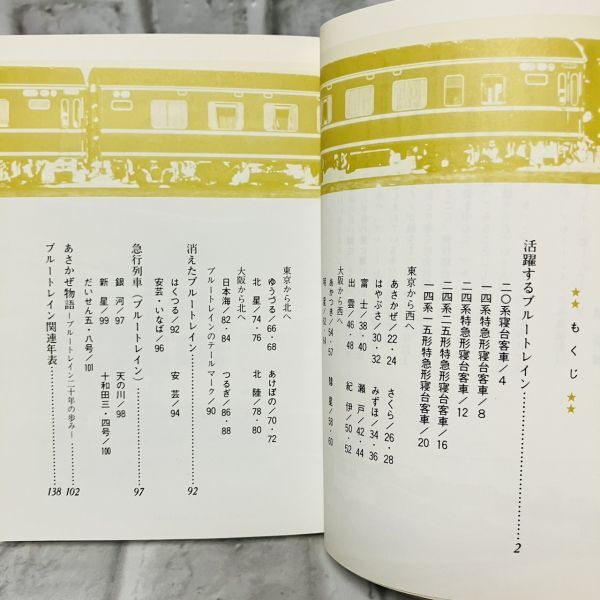 ★★ もくじ ★★
活躍するブルートレイン………2
二〇系寝台客車／4
一四系特急形寝台客車／8
二四系特急形寝台客車／12
二四系二五形特急形寝台客車／16
一四系一五形特急形寝台客車／20
東京から西へ
あさかぜ／22・24　さくら／26・28
はやぶさ／30・32　みずほ／34・36
富士／38・40　瀬戸／42・44
出雲／46・48　紀伊／50・52
大阪から西へ
あかつき／54・57　彗星／58・60
東京から北へ
ゆうづる／66・68　あけぼの／70・72
北星／74・76　北陸／78・80
大阪から北へ
日本海／82・84　つるぎ／86・88
ブルートレインのテールマーク／90
消えたブルートレイン………92
はくつる／92　安芸／94
安芸・いなば／96
急行列車（ブルートレイン）………97
銀河／97　天の川／98
新星／99　十和田三・四号／100
だいせん五・八号／101
あさかぜ物語―ブルートレイン二十年の歩み―………102
ブルートレイン関連年表………138